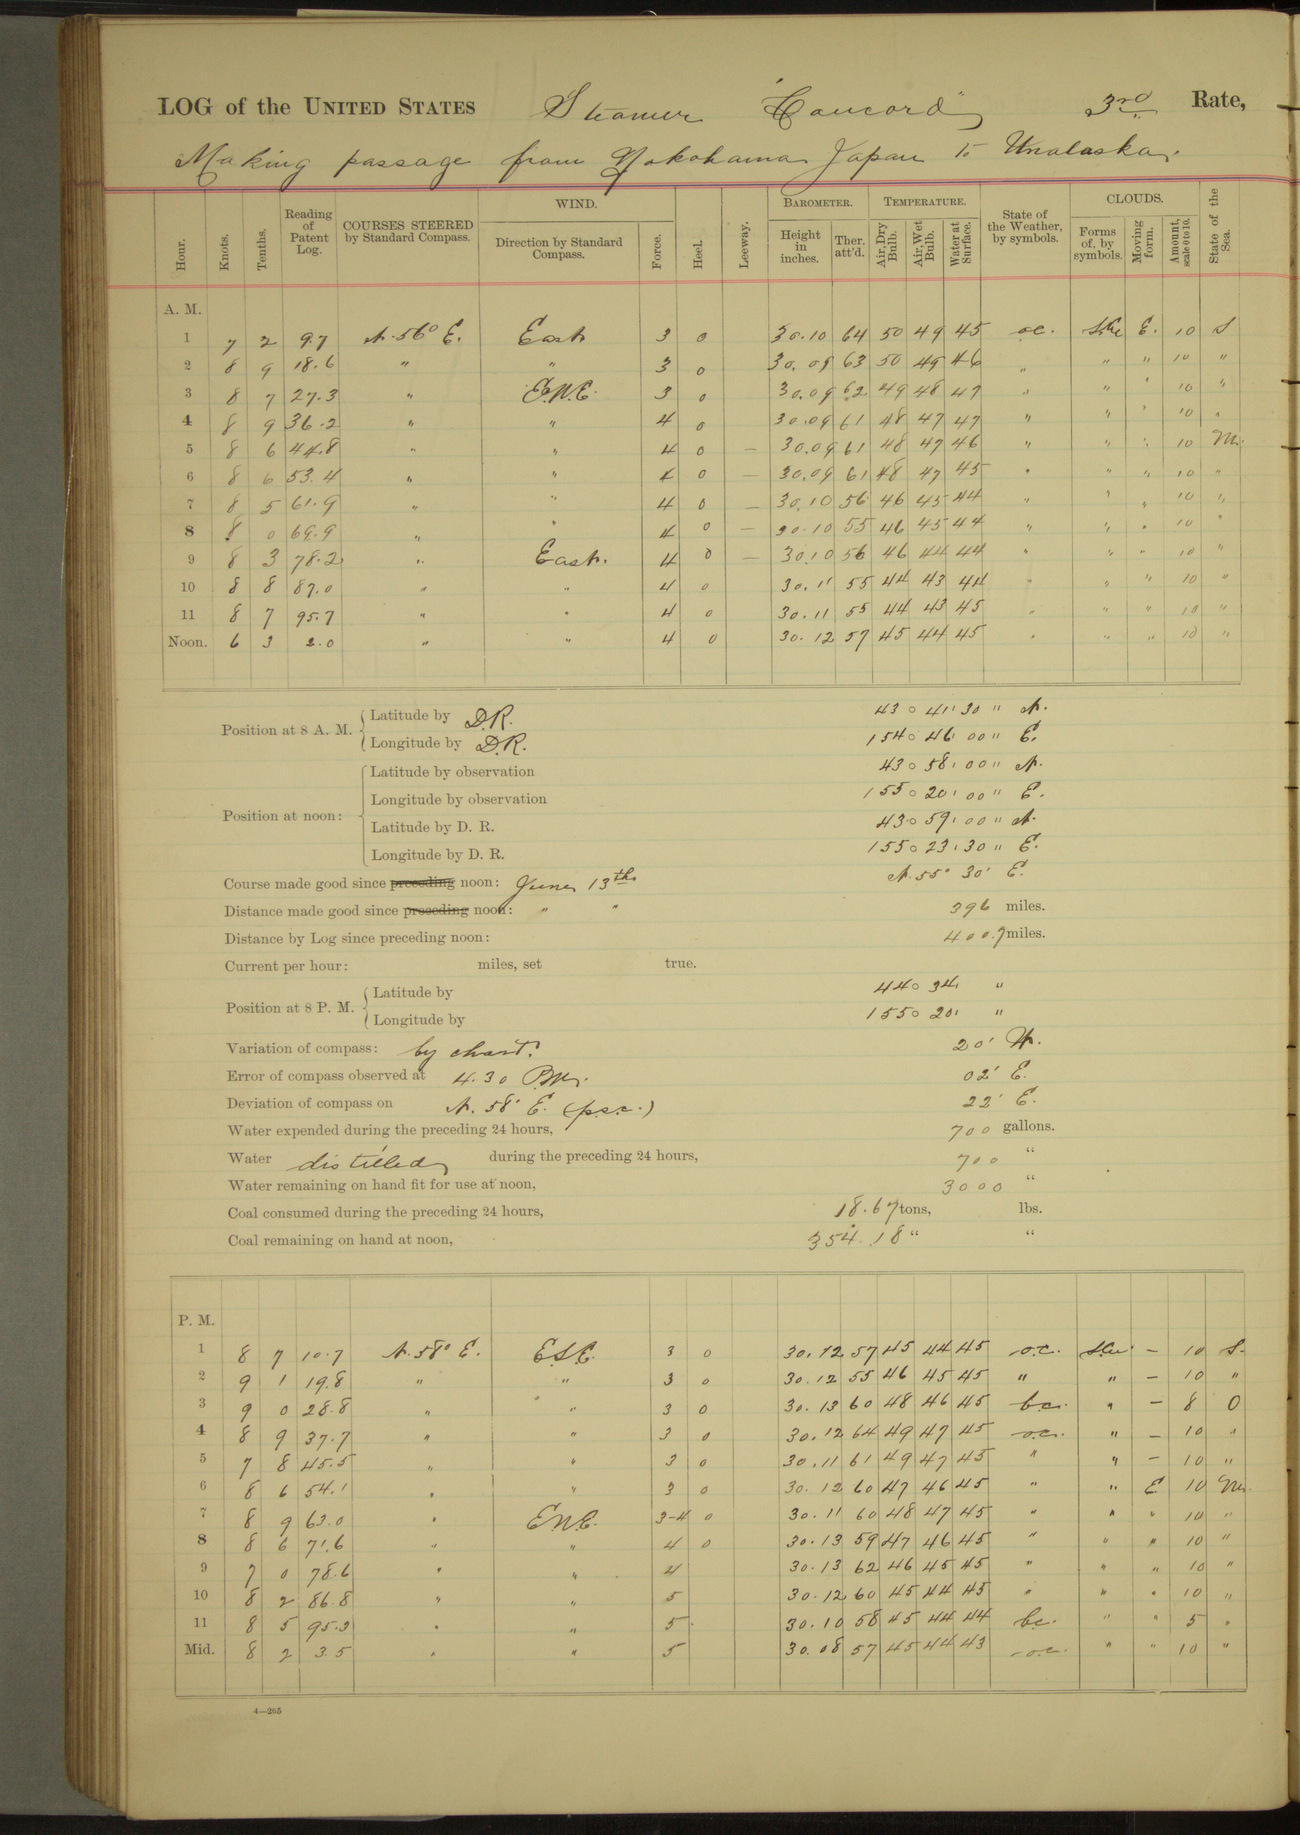 LOG of the UNITED STATES Steamer "Concord" 3rd Rate,
Making passage from Yokohama Japan to Unalaska.
Hour. Knots. Tenths. Reading of Patent Log. COURSES STEERED by Standard Compass. WIND. Direction by Standard Compass. Force. Heel. Leeway. BAROMETER. Height in inches. Ther. att'd. TEMPERATURE. Air, Dry Bulb. Air, Wet Bulb. Water at Surface. State of the Weather, by symbols. CLOUDS. Forms of, by symbols. Moving form. Amount, scale 0 to 10. State of the Sea.
A. M.
1 7 2 9.7 N. 56° E. East 3 0 30.10 64 50 49 45 o.c. S.Cu E. 10 S
2 8 9 18.6 " " 3 0 30.09 63 50 49 46 " " " 10 "
3 8 7 27.3 " E.N.E. 3 0 30.09 62 49 48 47 " " " 10 "
4 8 9 36.2 " " 4 0 30.09 61 48 47 47 " " " 10 "
5 8 6 44.8 " " 4 0 — 30.09 61 48 47 46 " " " 10 M.
6 8 6 53.4 " " 4 0 — 30.09 61 48 47 45 " " " 10 "
7 8 5 61.9 " " 4 0 — 30.10 56 46 45 44 " " " 10 "
8 8 0 69.9 " " 4 0 — 30.10 55 46 45 44 " " " 10 "
9 8 3 78.2 " East. 4 0 — 30.10 56 46 44 44 " " " 10 "
10 8 8 87.0 " " 4 0 30.11 55 44 43 44 " " " 10 "
11 8 7 95.7 " " 4 0 30.11 55 44 43 45 " " " 10 "
Noon. 6 3 2.0 " " 4 0 30.12 57 45 44 45 " " " 10 "
Position at 8 A. M. Latitude by D.R. 43° 41' 30" N.
Longitude by D.R. 154° 46' 00" E.
Position at noon: Latitude by observation 43° 58' 00" N.
Longitude by observation 155° 20' 00" E.
Latitude by D. R. 43° 59' 00" N.
Longitude by D. R. 155° 23' 30" E.
Course made good since preceding noon: June 13th N. 55° 30' E.
Distance made good since preceding noon: " " 396 miles.
Distance by Log since preceding noon: 400.7 miles.
Current per hour: miles, set true.
Position at 8 P. M. Latitude by 44° 34' "
Longitude by 155° 20' "
Variation of compass: by chart. 20' W.
Error of compass observed at 4.30 P.M. 02' E.
Deviation of compass on N. 58° E. (p.s.c.) 22' E.
Water expended during the preceding 24 hours, 700 gallons.
Water distilled during the preceding 24 hours, 700 "
Water remaining on hand fit for use at noon, 3000 "
Coal consumed during the preceding 24 hours, 18.67 tons, lbs.
Coal remaining on hand at noon, 354.18 " "
P. M.
1 8 7 10.7 N. 58° E. E.S.E. 3 0 30.12 57 45 44 45 o.c. S.Cu. — 10 S.
2 9 1 19.8 " " 3 0 30.12 55 46 45 45 " " — 10 "
3 9 0 28.8 " " 3 0 30.13 60 48 46 45 b.c. " — 8 O
4 8 9 37.7 " " 3 0 30.12 64 49 47 45 o.c. " — 10 "
5 7 8 45.5 " " 3 0 30.11 61 49 47 45 " " — 10 "
6 8 6 54.1 " " 3 0 30.12 60 47 46 45 " " E 10 M.
7 8 9 63.0 " E.N.E. 3-4 0 30.11 60 48 47 45 " " " 10 "
8 8 6 71.6 " " 4 0 30.13 59 47 46 45 " " " 10 "
9 7 0 78.6 " " 4 30.13 62 46 45 45 " " " 10 "
10 8 2 86.8 " " 5 30.12 60 45 44 45 " " " 10 "
11 8 5 95.3 " " 5 30.10 58 45 44 44 b.c. " " 5 "
Mid. 8 2 3.5 " " 5 30.08 57 45 44 43 o.c. " " 10 "
4—265